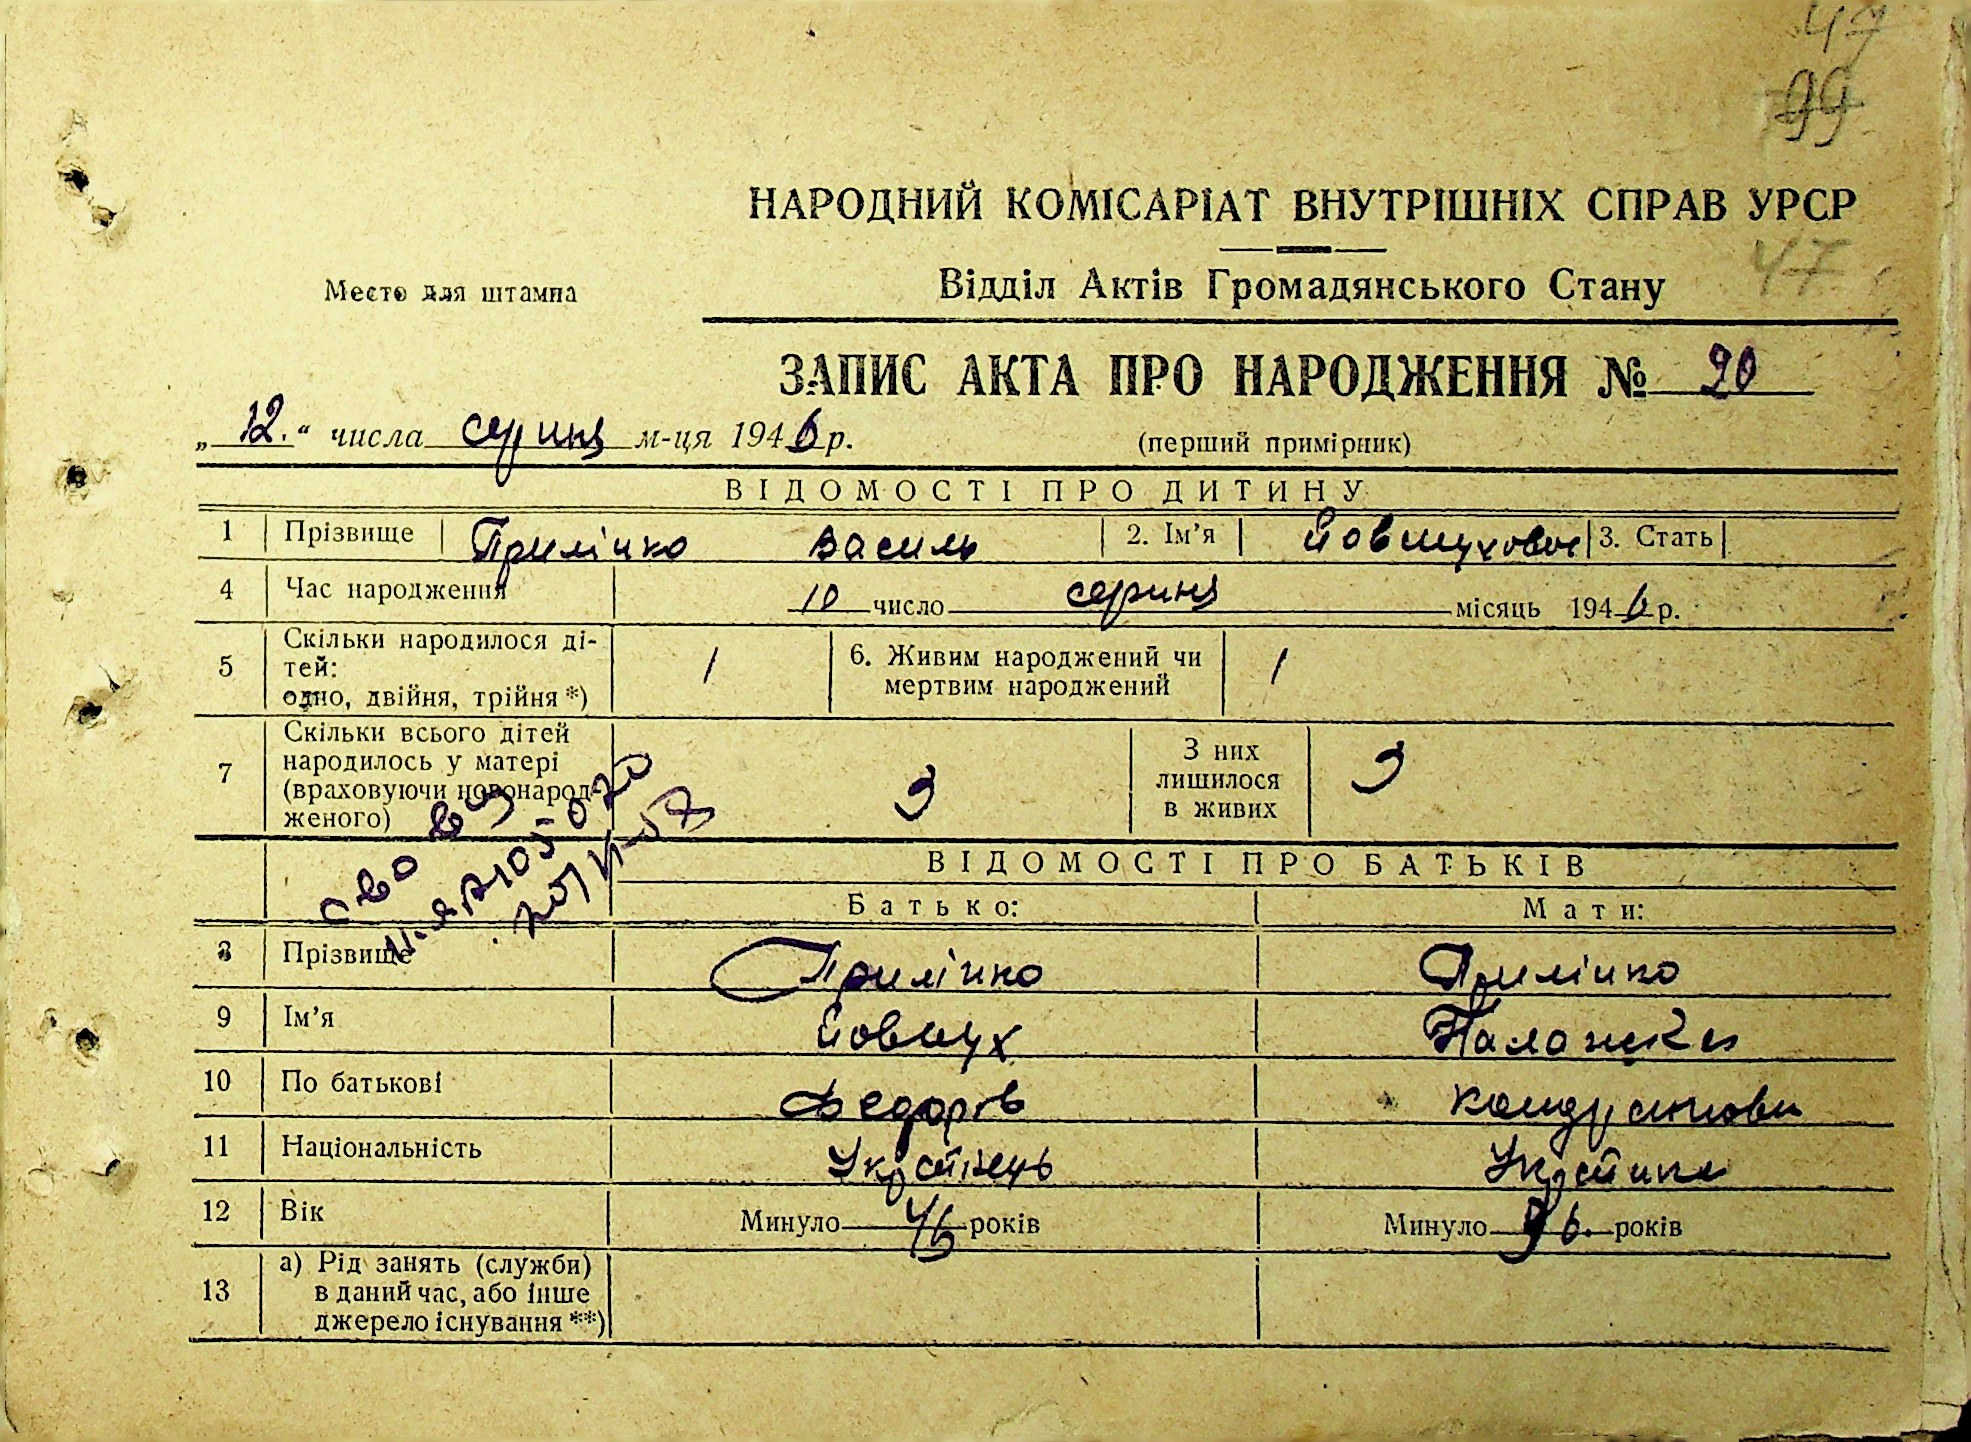 47
99
НАРОДНИЙ КОМІСАРІАТ ВНУТРІШНІХ СПРАВ УРСР
47
Место для штампа
Відділ Актів Громадянського Стану
ЗАПИС АКТА ПРО НАРОДЖЕННЯ № 20
„12.“ числа серпня м-ця 1946 р.
(перший примірник)
ВІДОМОСТІ ПРО ДИТИНУ
1 Прізвище Приліпко Василь 2. Ім'я Йовтухович 3. Стать
4 Час народження 10 число серпня місяць 1946 р.
5 Скільки народилося ді-
тей:
одно, двійня, трійня *) 1 6. Живим народжений чи
мертвим народжений 1
7 Скільки всього дітей
народилось у матері
(враховуючи новонарод-
женого) 3 З них
лишилося
в живих 3
ВІДОМОСТІ ПРО БАТЬКІВ
Батько: Мати:
8 Прізвище Приліпко Приліпко
9 Ім'я Йовтух Палажка
10 По батькові Федорів
11 Національність Українець Українка
12 Вік Минуло 46 років Минуло 36. років
13 а) Рід занять (служби)
в даний час, або інше
джерело існування **)